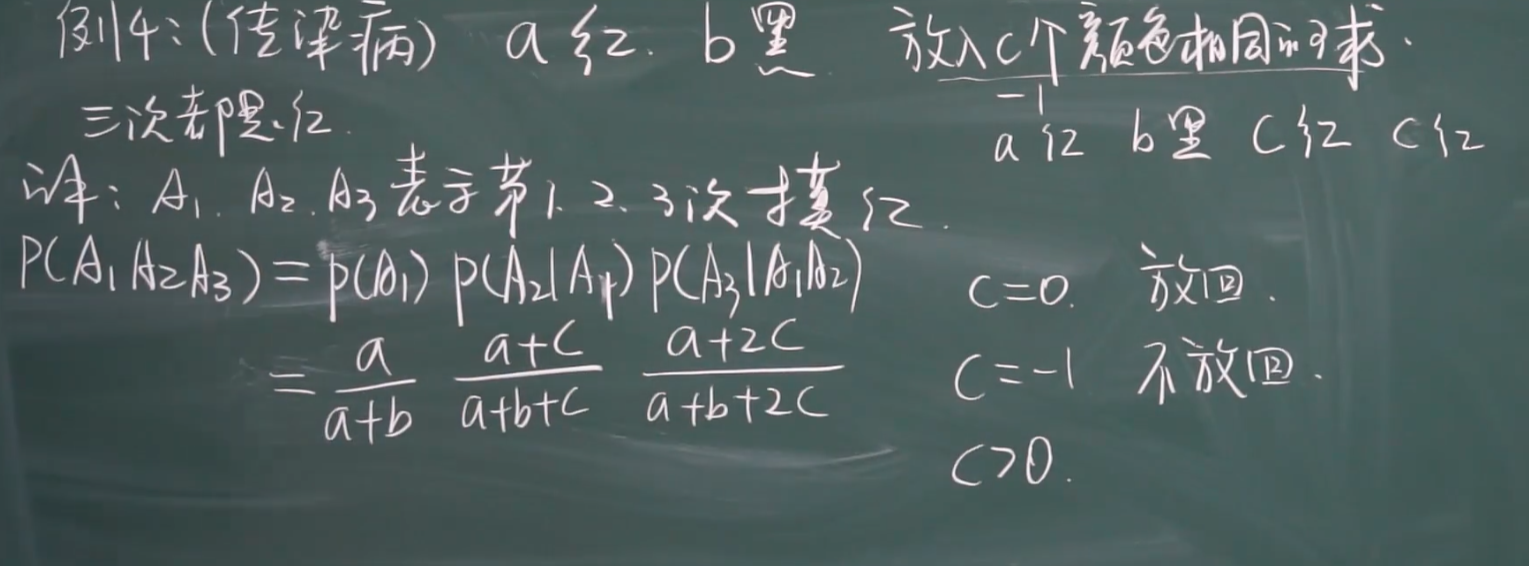 例4:(传染病) a红. b黑 放入c个颜色相同的球.
-1
三次都是红.
a红 b黑 c红 c红
解: A₁. A₂. A₃表示第1.2.3次摸红.
P(A₁A₂A₃) = P(A₁) P(A₂|A₁) P(A₃|A₁A₂)
= a/(a+b) (a+c)/(a+b+c) (a+2c)/(a+b+2c)
c=0. 放回.
c=-1 不放回.
c>0.